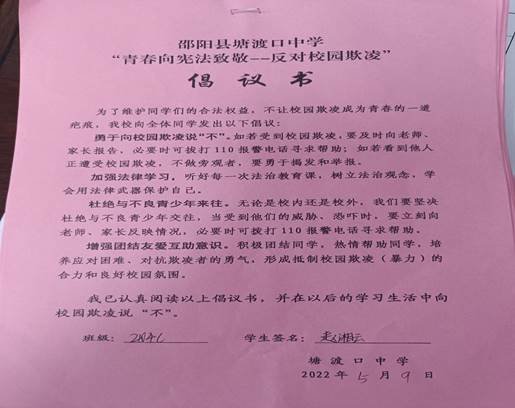 邵阳县塘渡口中学
“青春向宪法致敬——反对校园欺凌”
倡议书
为了维护同学们的合法权益，不让校园欺凌成为青春的一道
疤痕，我校向全体同学发出以下倡议：
勇于向校园欺凌说“不”。如若受到校园欺凌，要及时向老师、
家长报告，必要时可拨打110报警电话寻求帮助；如若看到他人
正遭受校园欺凌，不做旁观者，要勇于揭发和举报。
加强法律学习。听好每一次法治教育课，树立法治观念，学
会用法律武器保护自己。
杜绝与不良青少年来往。无论是校内还是校外，我们要坚决
杜绝与不良青少年交往，当受到他们的威胁、恐吓时，要立刻向
老师、家长反映情况，必要时可拨打110报警电话寻求帮助。
增强团结友爱互助意识。积极团结同学，热情帮助同学，培
养应对困难、对抗欺凌者的勇气，形成抵制校园欺凌（暴力）的
合力和良好校园氛围。
我已认真阅读以上倡议书，并在以后的学习生活中向
校园欺凌说“不”。
班级： 学生签名：
塘渡口中学
2022年5月9日